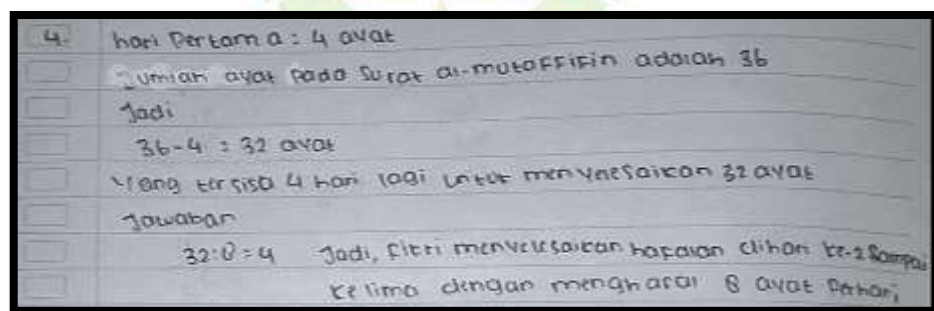 4. hari Pertama : 4 ayat
Jumlah ayat pada Surat al-mutaffifin adalah 36
Jadi
36-4 = 32 ayat
Yang tersisa 4 hari lagi untuk menyelesaikan 32 ayat
Jawaban
32:8=4 Jadi, Fitri menyelesaikan hafalan dihari ke-2 Sampai
kelima dengan menghafal 8 ayat Perhari,